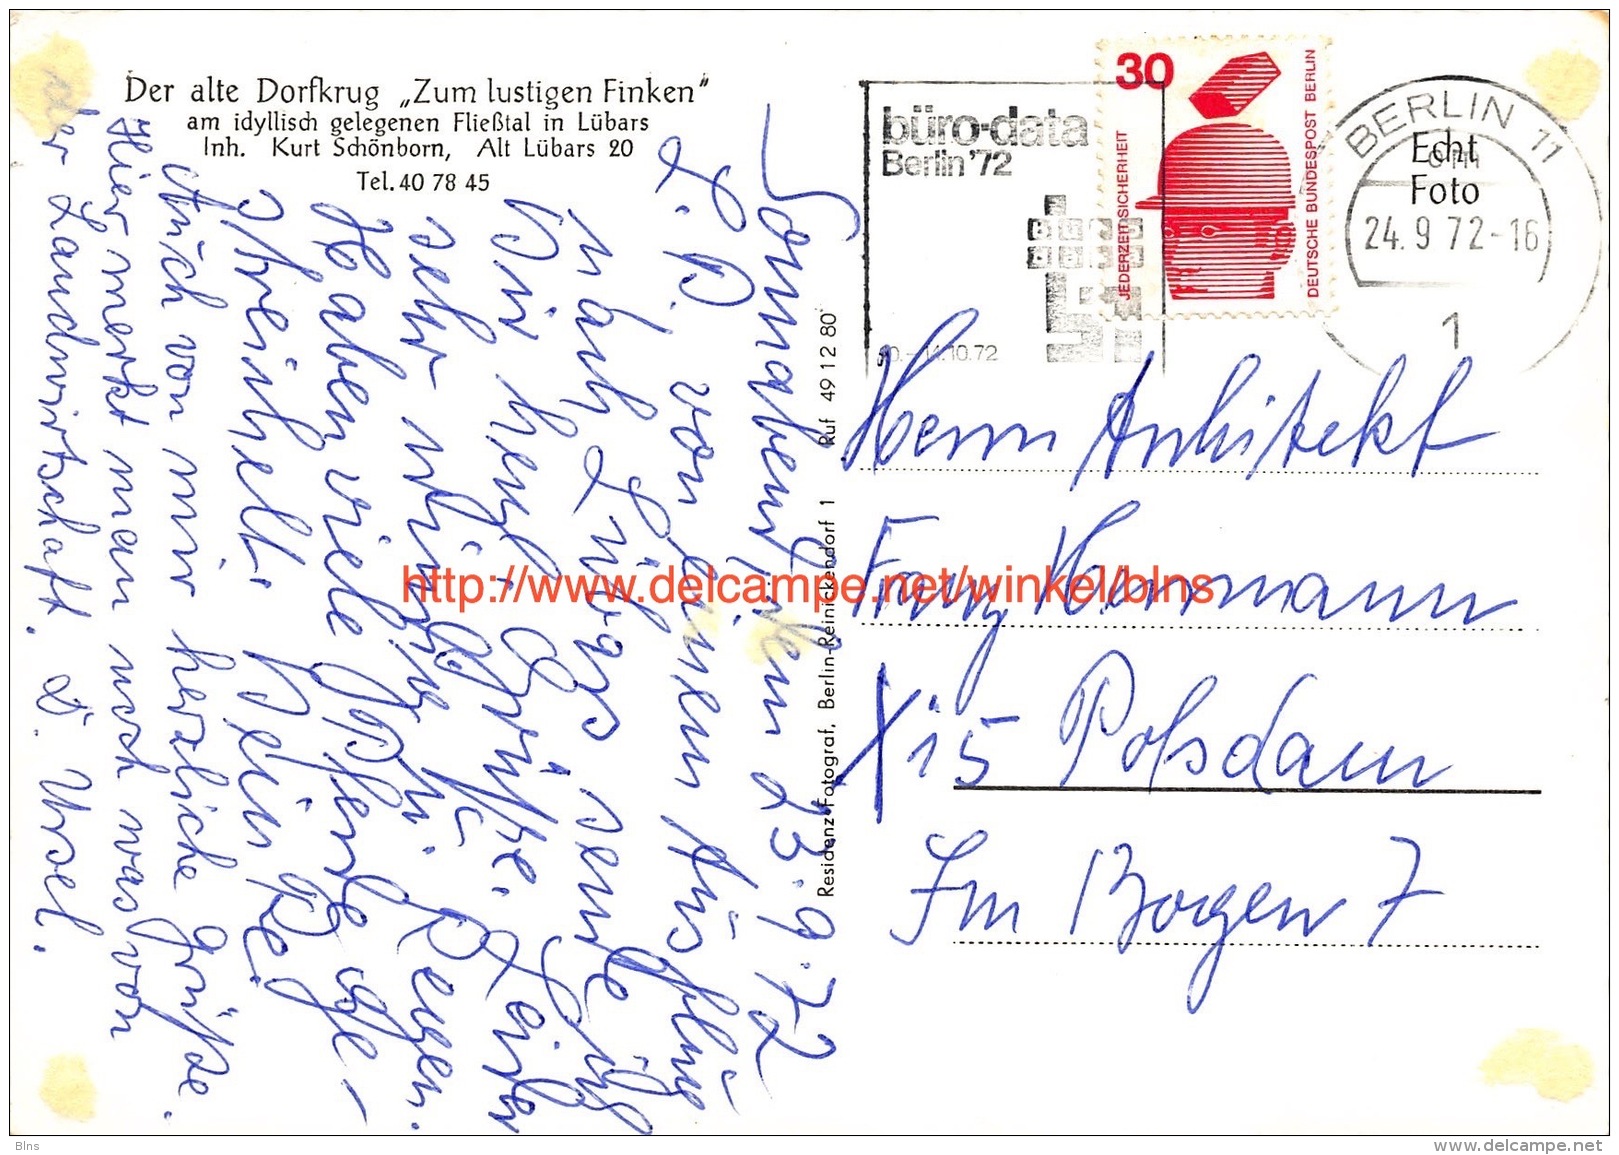 Der alte Dorfkrug „Zum lustigen Finken"
am idyllisch gelegenen Fließtal in Lübars
Inh. Kurt Schönborn, Alt Lübars 20
Tel. 40 78 45
Sonnabend, dem 23.9.72
L. P. von einem Ausflug
nach Lübars sende ich
Dir herzl. Grüße. Leider
sehr windig u. Regen.
Haben viele Pferde ge-
streichelt. Dein Pe
Auch von mir herzliche Grüße.
Hier merkt man noch was von
der Landwirtschaft. D. Ursel.
Residenz-Fotograf, Berlin-Reinickendorf 1 Ruf 49 12 80
büro-data
Berlin '72
10.-14.10.72
30
JEDERZEIT SICHERHEIT
DEUTSCHE BUNDESPOST BERLIN
BERLIN 11
Echt
Foto
24.9.72-16
1
Herrn Architekt
Franz Herrmann
X 15 Potsdam
Im Bogen 7
http://www.delcampe.net/winkel/blns
Blns
www.delcampe.net